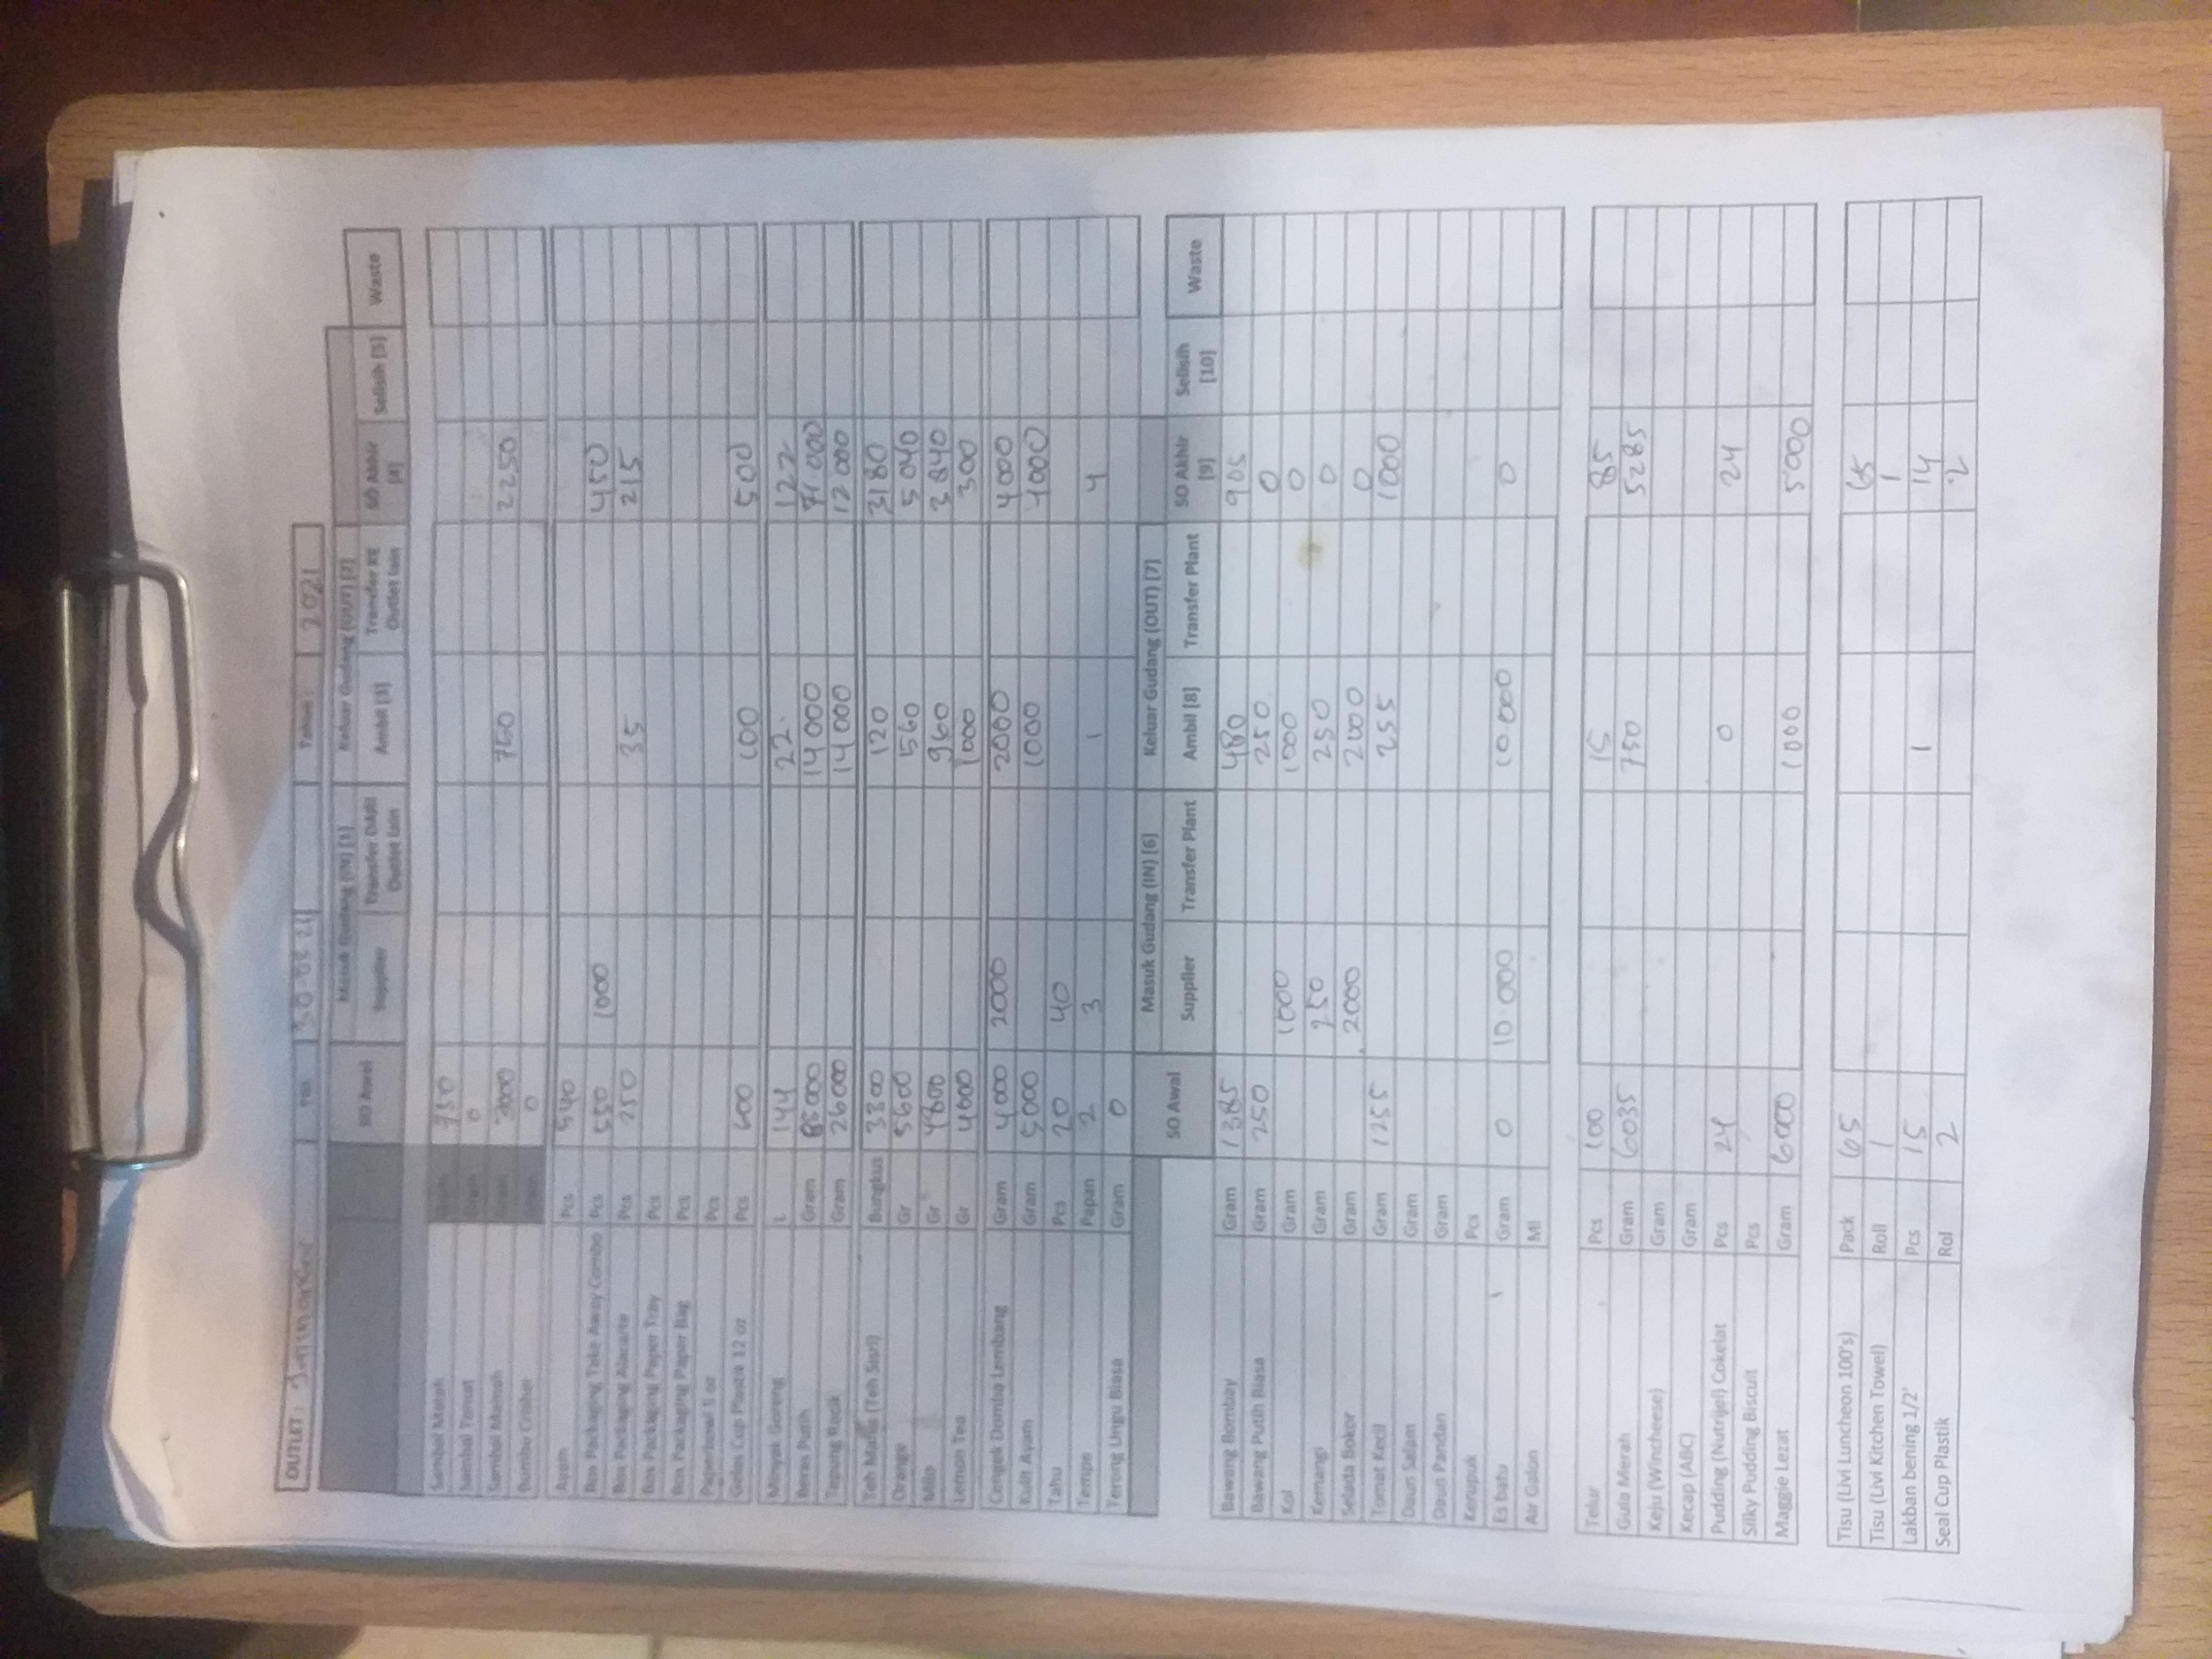 OUTLET : Tgl. 30-05-21 Tahun : 2021
SO Awal Masuk Gudang (IN) [1] Keluar Gudang (OUT) [2] SO Akhir [4] Selisih [5] Waste
Supplier Transfer DARI Outlet lain Ambil [3] Transfer KE Outlet lain
Sambal Matah Gram 750
Sambal Tomat Gram 0
Sambal Gram 3000 750 2250
Bumbu Gram 0
Ayam Pcs 540
Box Packaging Take Away Combo Pcs 550 1000 450
Box Packaging Alacarte Pcs 250 35 215
Box Packaging Paper Tray Pcs
Box Packaging Paper Bag Pcs
Paperbowl 5 oz Pcs
Gelas Cup Plastik 12 oz Pcs 600 100 500
Minyak Goreng L 144 22 122
Beras Putih Gram 85000 14000 71.000
Tepung Racik Gram 26000 14000 12000
Teh Manis (Teh Sisri) Bungkus 3300 120 3180
Orange Gr 5600 560 5040
Milo Gr 4800 960 3840
Lemon Tea Gr 4000 1000 300
Cengek Domba Lembang Gram 4000 2000 2000 4000
Kulit Ayam Gram 5000 1000 4000
Tahu Pcs 20 40
Tempe Papan 2 3 1 4
Terong Ungu Biasa Gram 0
SO Awal Masuk Gudang (IN) [6] Keluar Gudang (OUT) [7] SO Akhir [9] Selisih [10] Waste
Supplier Transfer Plant Ambil [8] Transfer Plant
Bawang Bombay Gram 1385 480 905
Bawang Putih Biasa Gram 250 250 0
Kol Gram 1000 1000 0
Kemangi Gram 250 250 0
Selada Bokor Gram 2000 2000 0
Tomat Kecil Gram 1255 255 1000
Daun Salam Gram
Daun Pandan Gram
Kerupuk Pcs
Es batu Gram 0 10.000 10.000 0
Air Galon Ml
Telur Pcs 100 15 85
Gula Merah Gram 6035 750 5285
Keju (Wincheese) Gram
Kecap (ABC) Gram
Pudding (Nutrijel) Cokelat Pcs 24 0 24
Silky Pudding Biscuit Pcs
Maggie Lezat Gram 6000 1000 5000
Tisu (Livi Luncheon 100's) Pack 65 65
Tisu (Livi Kitchen Towel) Roll 1 1
Lakban bening 1/2' Pcs 15 1 14
Seal Cup Plastik Rol 2 2